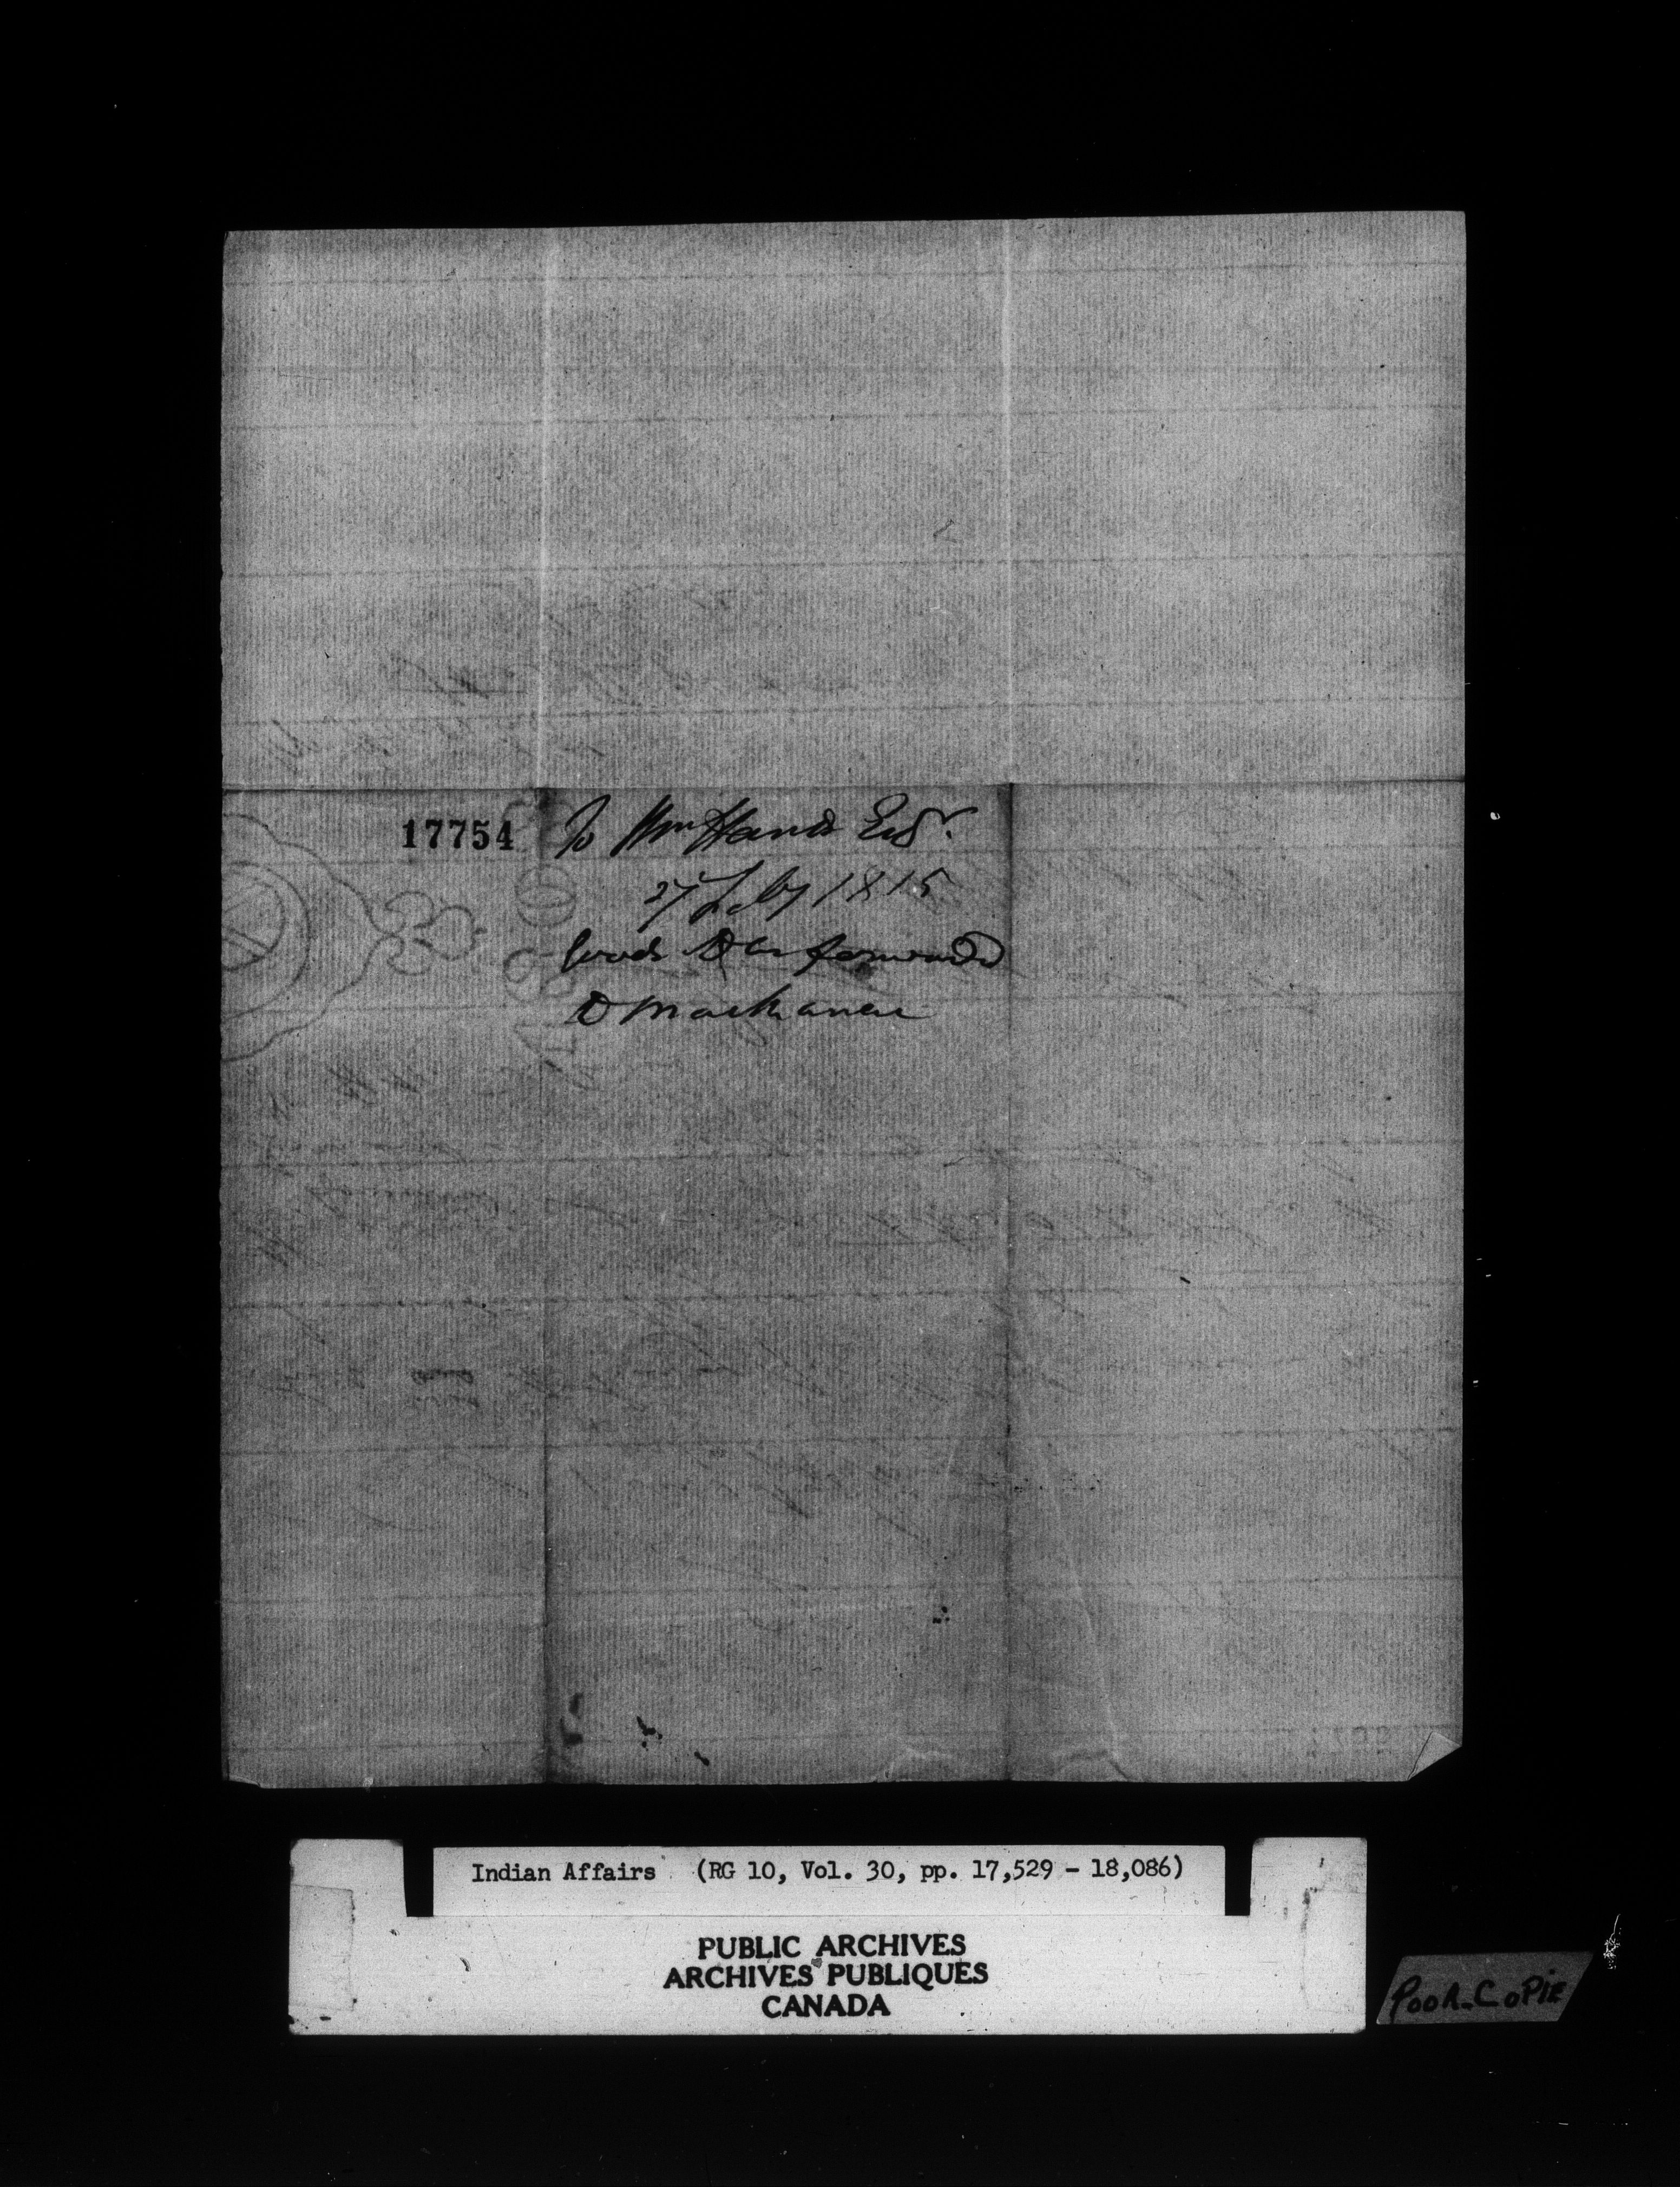 17754
To Wm Hands Esqr.
27 Feby 1815
Goods forwarded
Indian Affairs (RG 10, Vol. 30, pp. 17,529 - 18,086)
PUBLIC ARCHIVES
ARCHIVES PUBLIQUES
CANADA
POOR-COPIE